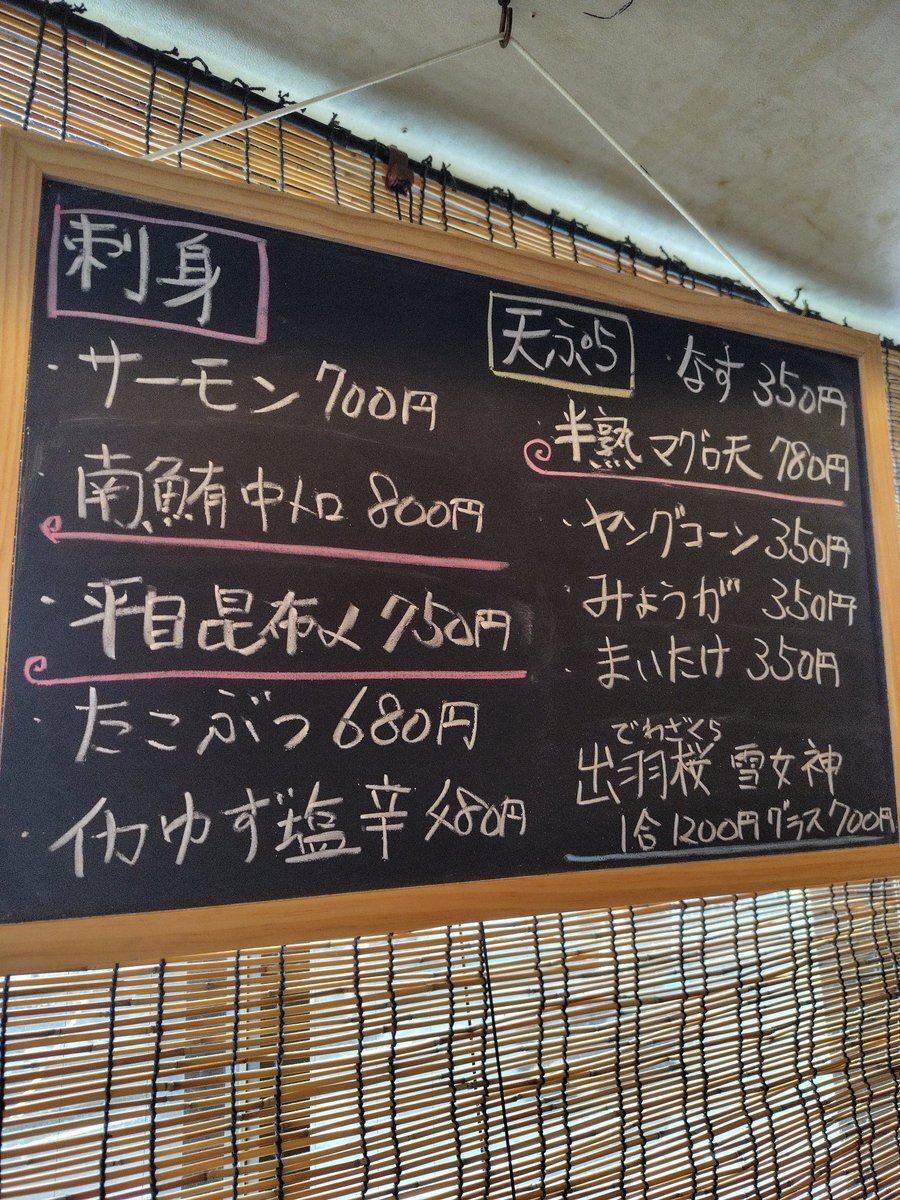 刺身
・サーモン 700円
南鮪中トロ 800円
・平目昆布〆 750円
・たこぶつ 680円
・イカゆず塩辛 480円
天ぷら
・なす 350円
・半熟マグロ天 780円
・ヤングコーン 350円
・みょうが 350円
・まいたけ 350円
でわざくら
出羽桜 雪女神
1合1200円 グラス700円